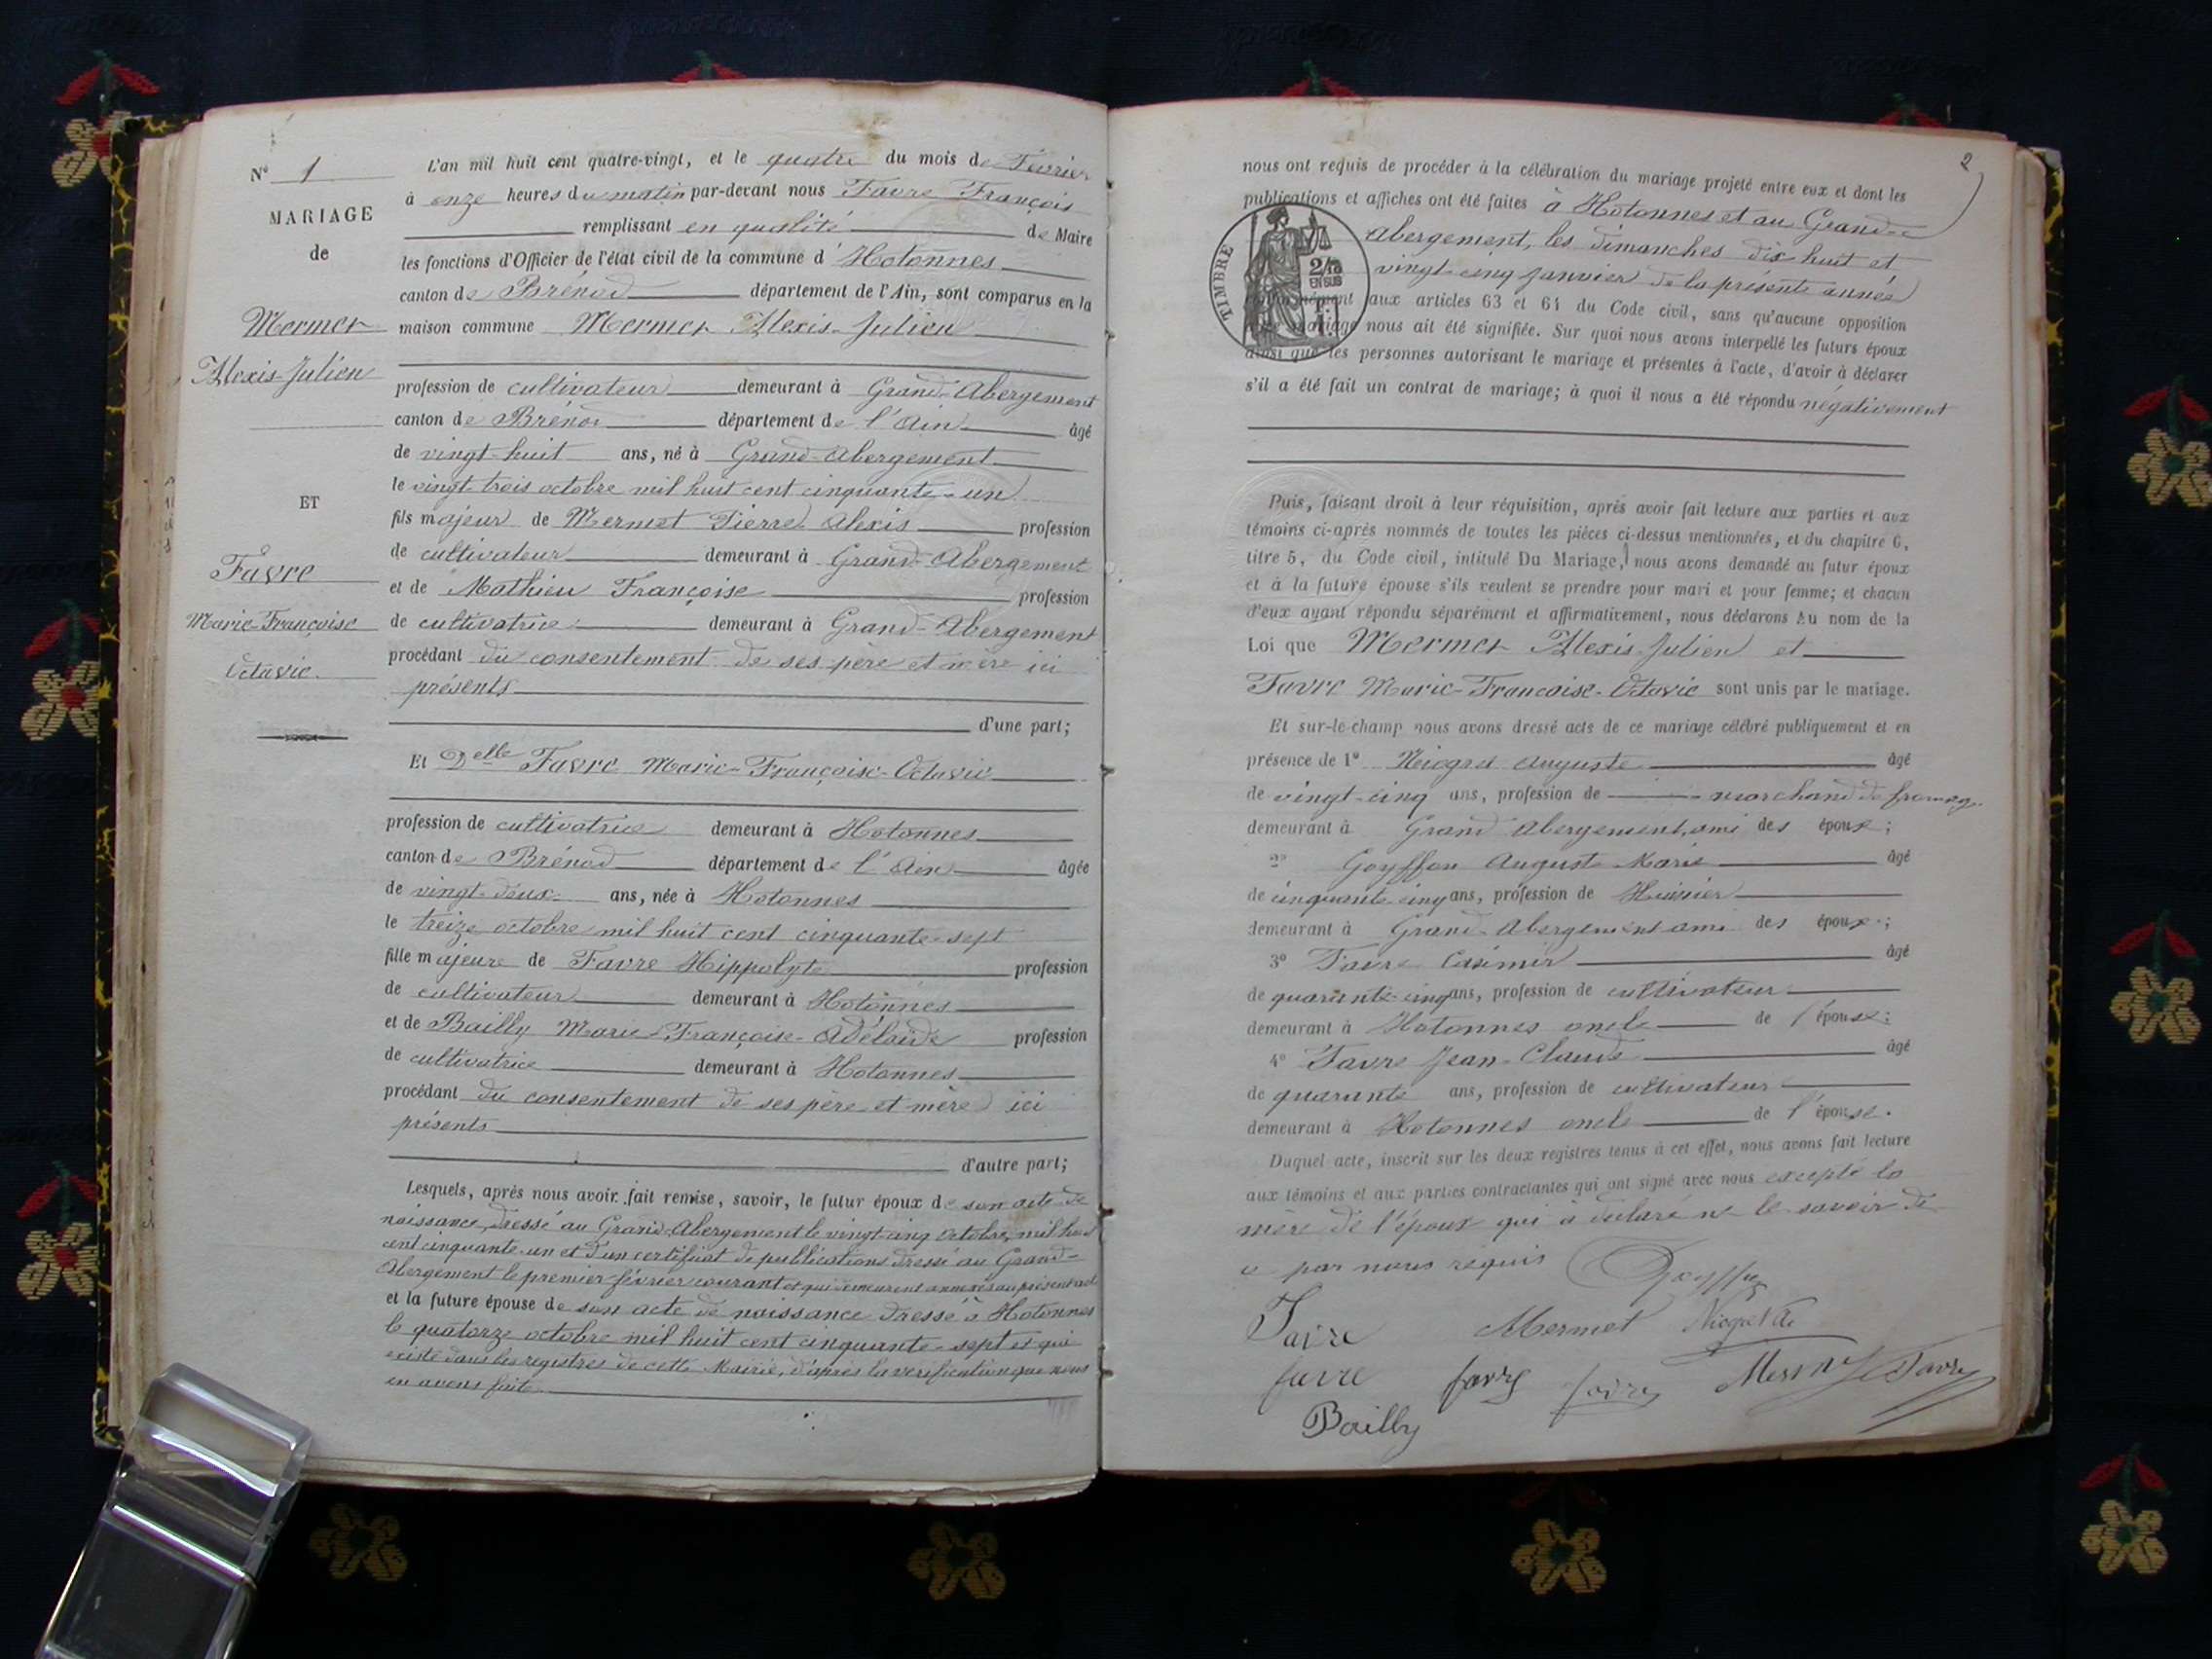 N° 1
MARIAGE
de
Mermet
Alexis-Julien
ET
Favre
Marie-Françoise
Octavie.
L'an mil huit cent quatre-vingt, et le quatre du mois de Février
à onze heures du matin par-devant nous Favre François
remplissant en qualité de Maire
les fonctions d'Officier de l'état civil de la commune d'Hotonnes
canton de Brénod département de l'Ain, sont comparus en la
maison commune Mermet Alexis-Julien
profession de cultivateur demeurant à Grand-Abergement
canton de Brénod département de l'Ain âgé
de vingt-huit ans, né à Grand-Abergement
le vingt-trois octobre mil huit cent cinquante-un
fils majeur de Mermet Pierre Alexis profession
de cultivateur demeurant à Grand-Abergement
et de Mathieu Françoise profession
de cultivatrice demeurant à Grand-Abergement
procédant du consentement de ses père et mère ici
présents
d'une part;
Et Delle Favre Marie-Françoise-Octavie
profession de cultivatrice demeurant à Hotonnes
canton de Brénod département de l'Ain âgée
de vingt-deux ans, née à Hotonnes
le treize octobre mil huit cent cinquante-sept
fille majeure de Favre Hippolyte profession
de cultivateur demeurant à Hotonnes
et de Bailly Marie-Françoise-Adélaïde profession
de cultivatrice demeurant à Hotonnes
procédant du consentement de ses père et mère ici
présents
d'autre part;
Lesquels, après nous avoir fait remise, savoir, le futur époux de son acte de
naissance, dressé au Grand-Abergement le vingt-cinq octobre, mil huit
cent cinquante-un et d'un certificat de publications dressé au Grand-
Abergement le premier février courant et qui demeurent annexés au présent acte
et la future épouse de son acte de naissance dressé à Hotonnes
le quatorze octobre mil huit cent cinquante-sept et qui
existe dans les registres de cette Mairie, d'après la vérification que nous
en avons faite
2
nous ont requis de procéder à la célébration du mariage projeté entre eux et dont les
publications et affiches ont été faites à Hotonnes et au Grand-
Abergement, les dimanches dix-huit et
vingt-cinq janvier de la présente année
TIMBRE
2/10
EN SUS
1F
conformément aux articles 63 et 64 du Code civil, sans qu'aucune opposition
mariage nous ait été signifiée. Sur quoi nous avons interpellé les futurs époux
ainsi que les personnes autorisant le mariage et présentes à l'acte, d'avoir à déclarer
s'il a été fait un contrat de mariage; à quoi il nous a été répondu négativement
Puis, faisant droit à leur réquisition, après avoir fait lecture aux parties et aux
témoins ci-après nommés de toutes les pièces ci-dessus mentionnées, et du chapitre 6,
titre 5, du Code civil, intitulé Du Mariage, nous avons demandé au futur époux
et à la future épouse s'ils veulent se prendre pour mari et pour femme; et chacun
d'eux ayant répondu séparément et affirmativement, nous déclarons Au nom de la
Loi que Mermet Alexis-Julien et
Favre Marie-Françoise-Octavie sont unis par le mariage.
Et sur-le-champ nous avons dressé acte de ce mariage célébré publiquement et en
présence de 1° Niogret Auguste âgé
de vingt-cinq ans, profession de marchand de fromage
demeurant à Grand Abergement, ami des époux;
2° Goyffon Auguste Marie âgé
de cinquante-cinq ans, profession de Huissier
demeurant à Grand-Abergement ami des époux;
3° Favre Casimir âgé
de quarante-cinq ans, profession de cultivateur
demeurant à Hotonnes oncle de l'épouse;
4° Favre Jean-Claude âgé
de quarante ans, profession de cultivateur
demeurant à Hotonnes oncle de l'épouse.
Duquel acte, inscrit sur les deux registres tenus à cet effet, nous avons fait lecture
aux témoins et aux parties contractantes qui ont signé avec nous excepté la
mère de l'époux qui a déclaré ne le savoir de
ce par nous requis
Goyffon
Favre Mermet Niogret A
favre favre favre Mermet Favre
Bailly